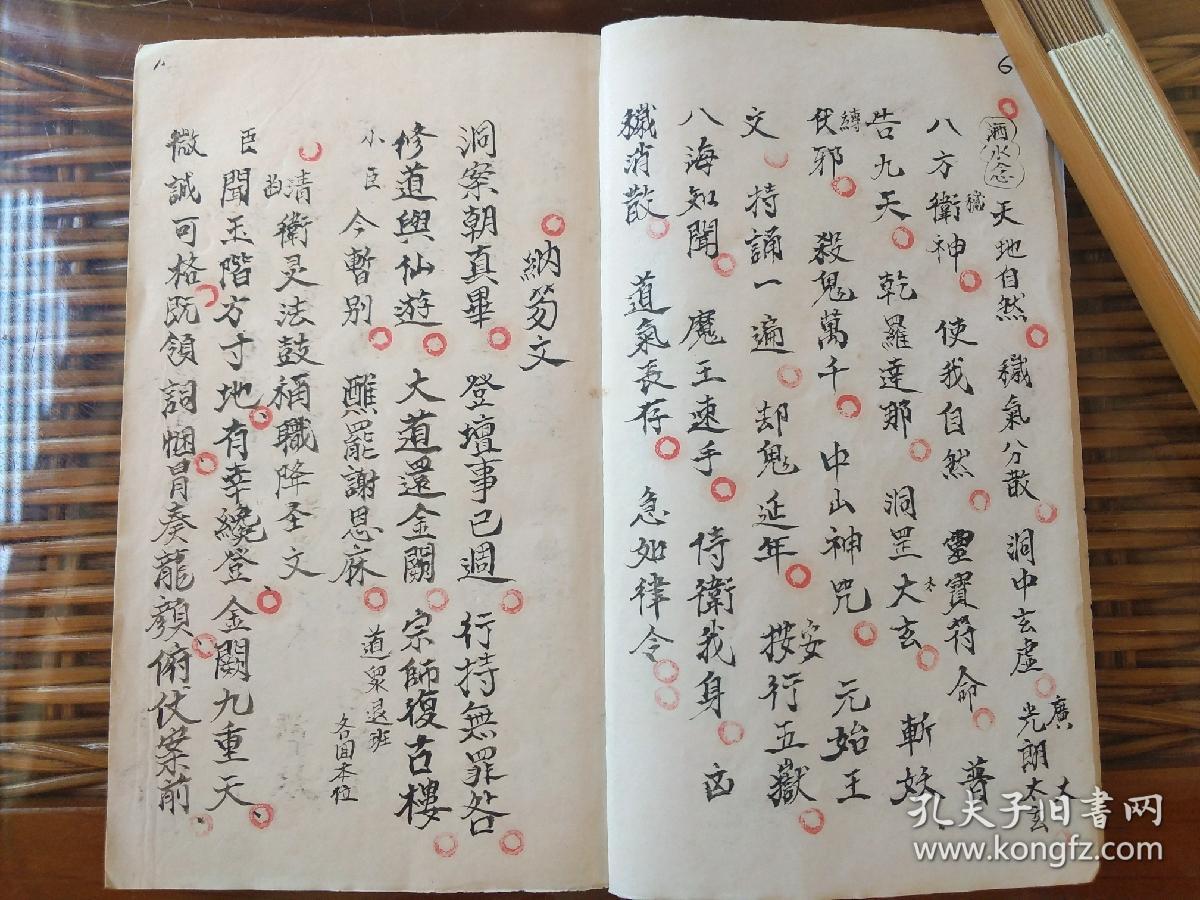 6
洒水念 天地自然 穢氣分散 洞中玄虛 光朗太玄
廣
八方衛神 使我自然 靈寶符命 普
告九天 乾羅達那 洞罡大玄 斬妖
縛
伏邪 殺鬼萬千 中山神咒 元始王
文 持誦一遍 却鬼延年 按行五嶽
安
八海知聞 魔王速手 侍衛我身 凶
穢消散 道氣長存 急如律令
納笏文
洞案朝真畢 登壇事已週 行持無罪咎
修道與仙遊 大道還金闕 宗師復古樓
小臣今暫別 醮罷謝恩庥 道眾退班
各回本位
清衛灵法鼓 稱職降圣文
臣聞玉階方寸地 有幸纔登金闕九重天
微誠可格既領詞悃冐奏龍顏俯伏案前
孔夫子旧书网
www.kongfz.com